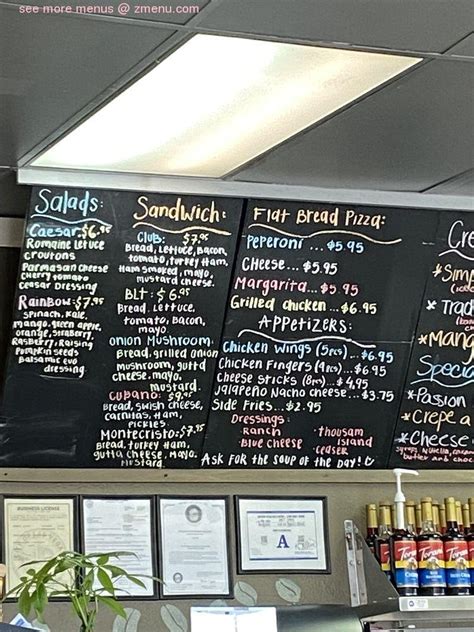 see more menus @ zmenu.com
Salads:
Caesar: $6.95
Romaine Letuce
croutons
Parmasan Cheese
cherry tomato
Ceasar Dressing
Rainbow: $7.95
Spinach, Kale,
mango, green apple,
orange, straberry,
Rasberry, Raising
Pumpkin seeds
Balsamic evo
dressing
Sandwich:
Club: $7.95
Bread, lettuce, Bacon,
tomato, turkey Ham,
Ham smoked, mayo,
mustard cheese.
BLT: $6.95
Bread, Lettuce,
tomato, Bacon,
mayo.
onion Mushroom:
Bread, grilled onion
Mushroom, gutta
cheese, mayo,
mustard.
Cubano: $9.95
Bread, swish cheese,
carnitas, Ham,
pickles.
Montecristo: $7.95
Bread, turkey Ham,
gutta cheese, Mayo,
Mustard.
Flat Bread Pizza:
Peperoni ... $5.95
Cheese ... $5.95
Margarita ... $5.95
Grilled chicken ... $6.95
Appetizers:
Chicken Wings (5pcs) ... $6.95
Chicken Fingers (4pcs) ... $6.95
Cheese sticks (8pcs) ... $4.95
Jalapeño Nacho cheese ... $3.75
Side Fries ... $2.95
Dressings:
· Ranch · Thousam
· Blue Cheese Island
· Ceaser
Ask for the soup of the day!
Cre
*Simp
*Trad
*Mang
Specia
*Passion
*Crepe a
*Cheese
Business License
A
Torani
Torani
Torani